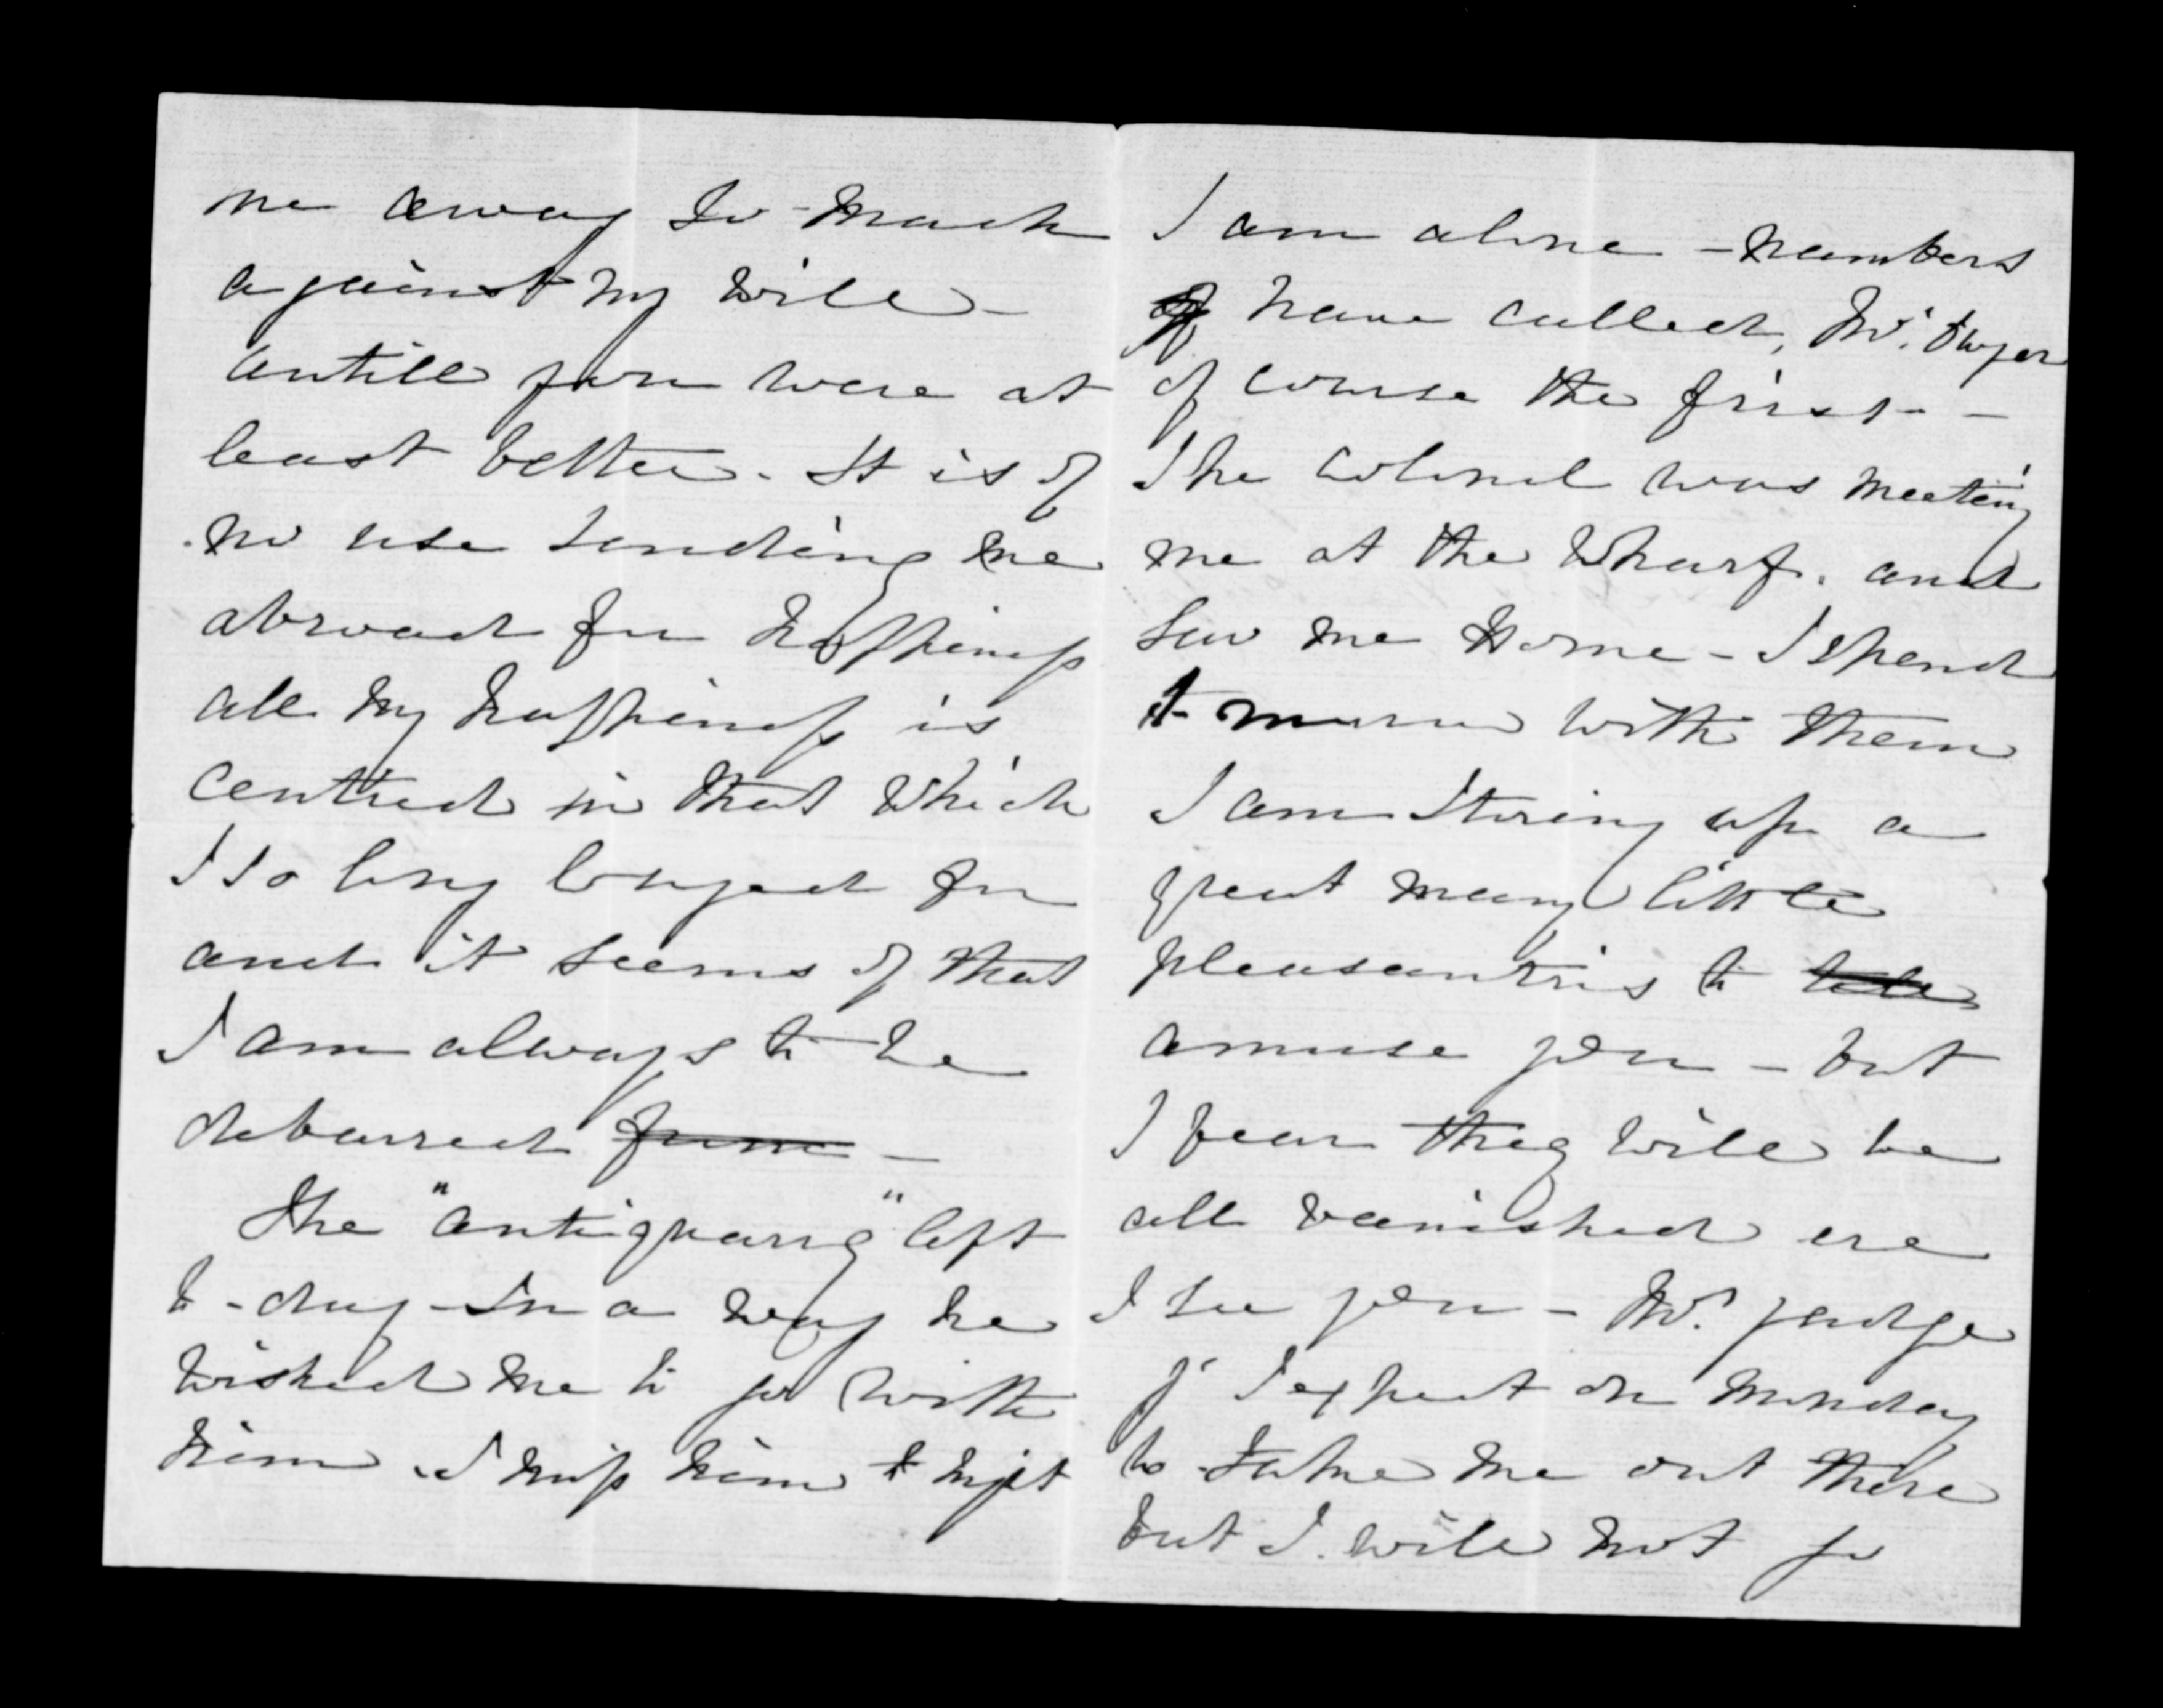 me away so much
against my will -
untill you were at
least better. It is of
no use sending me
abroad for happiness
all my happiness is
centred in that which
I so long longed for
and it seems of that
I am always to be
debarred from -
The "antiquary" left
to-day - In a way he
wished me to go with
him. I miss him to night
I am alone - numbers
of have called, Mr.
of course the first -
The Colonel was meeting
me at the Wharf. and
saw me home - I spend
to morrow with them
I am storing up a
great many little
pleasantries to tell
amuse you - but
I fear they will be
all vanished ere
I see you - Mr. Judge
J I expect on Monday
to take me out there
but I will not go